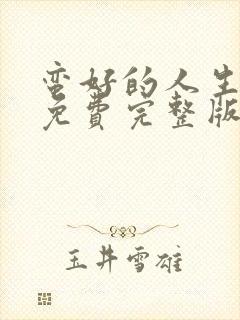 蛮好的人生
免費完整版
玉井雪雄